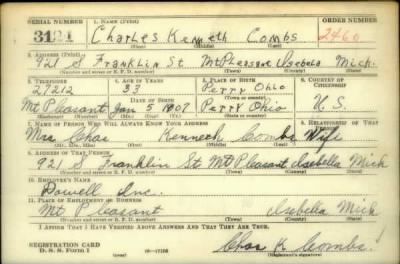 SERIAL NUMBER 1. NAME (Print) ORDER NUMBER
3121 Charles Kenneth Combs 2460
(First) (Middle) (Last)
2. ADDRESS (Print)
921 S Franklin St Mt Pleasant Isabela Mich.
(Number and street or R. F. D. number) (Town) (County) (State)
3. TELEPHONE 4. AGE IN YEARS 5. PLACE OF BIRTH 6. COUNTRY OF CITIZENSHIP
27212 33 Perry Ohio
DATE OF BIRTH (Town or county)
Mt Pleasant Jan 5 1907 Perry Ohio U. S.
(Exchange) (Mo.) (Day) (Yr.) (State or country)
7. NAME OF PERSON WHO WILL ALWAYS KNOW YOUR ADDRESS 8. RELATIONSHIP OF THAT PERSON
Mrs Chas Kenneth Combs Wife
(Mr., Mrs., Miss) (First) (Middle) (Last)
9. ADDRESS OF THAT PERSON
921 S Franklin St Mt Pleasant Isabella Mich
(Number and street or R. F. D. number) (Town) (County) (State)
10. EMPLOYER'S NAME
Dowell Inc.
11. PLACE OF EMPLOYMENT OR BUSINESS
Mt Pleasant Isabella Mich
(Number and street or R. F. D. number) (Town) (County) (State)
I AFFIRM THAT I HAVE VERIFIED ABOVE ANSWERS AND THAT THEY ARE TRUE.
REGISTRATION CARD
D. S. S. Form 1 Chas K Combs
(Registrant's signature)